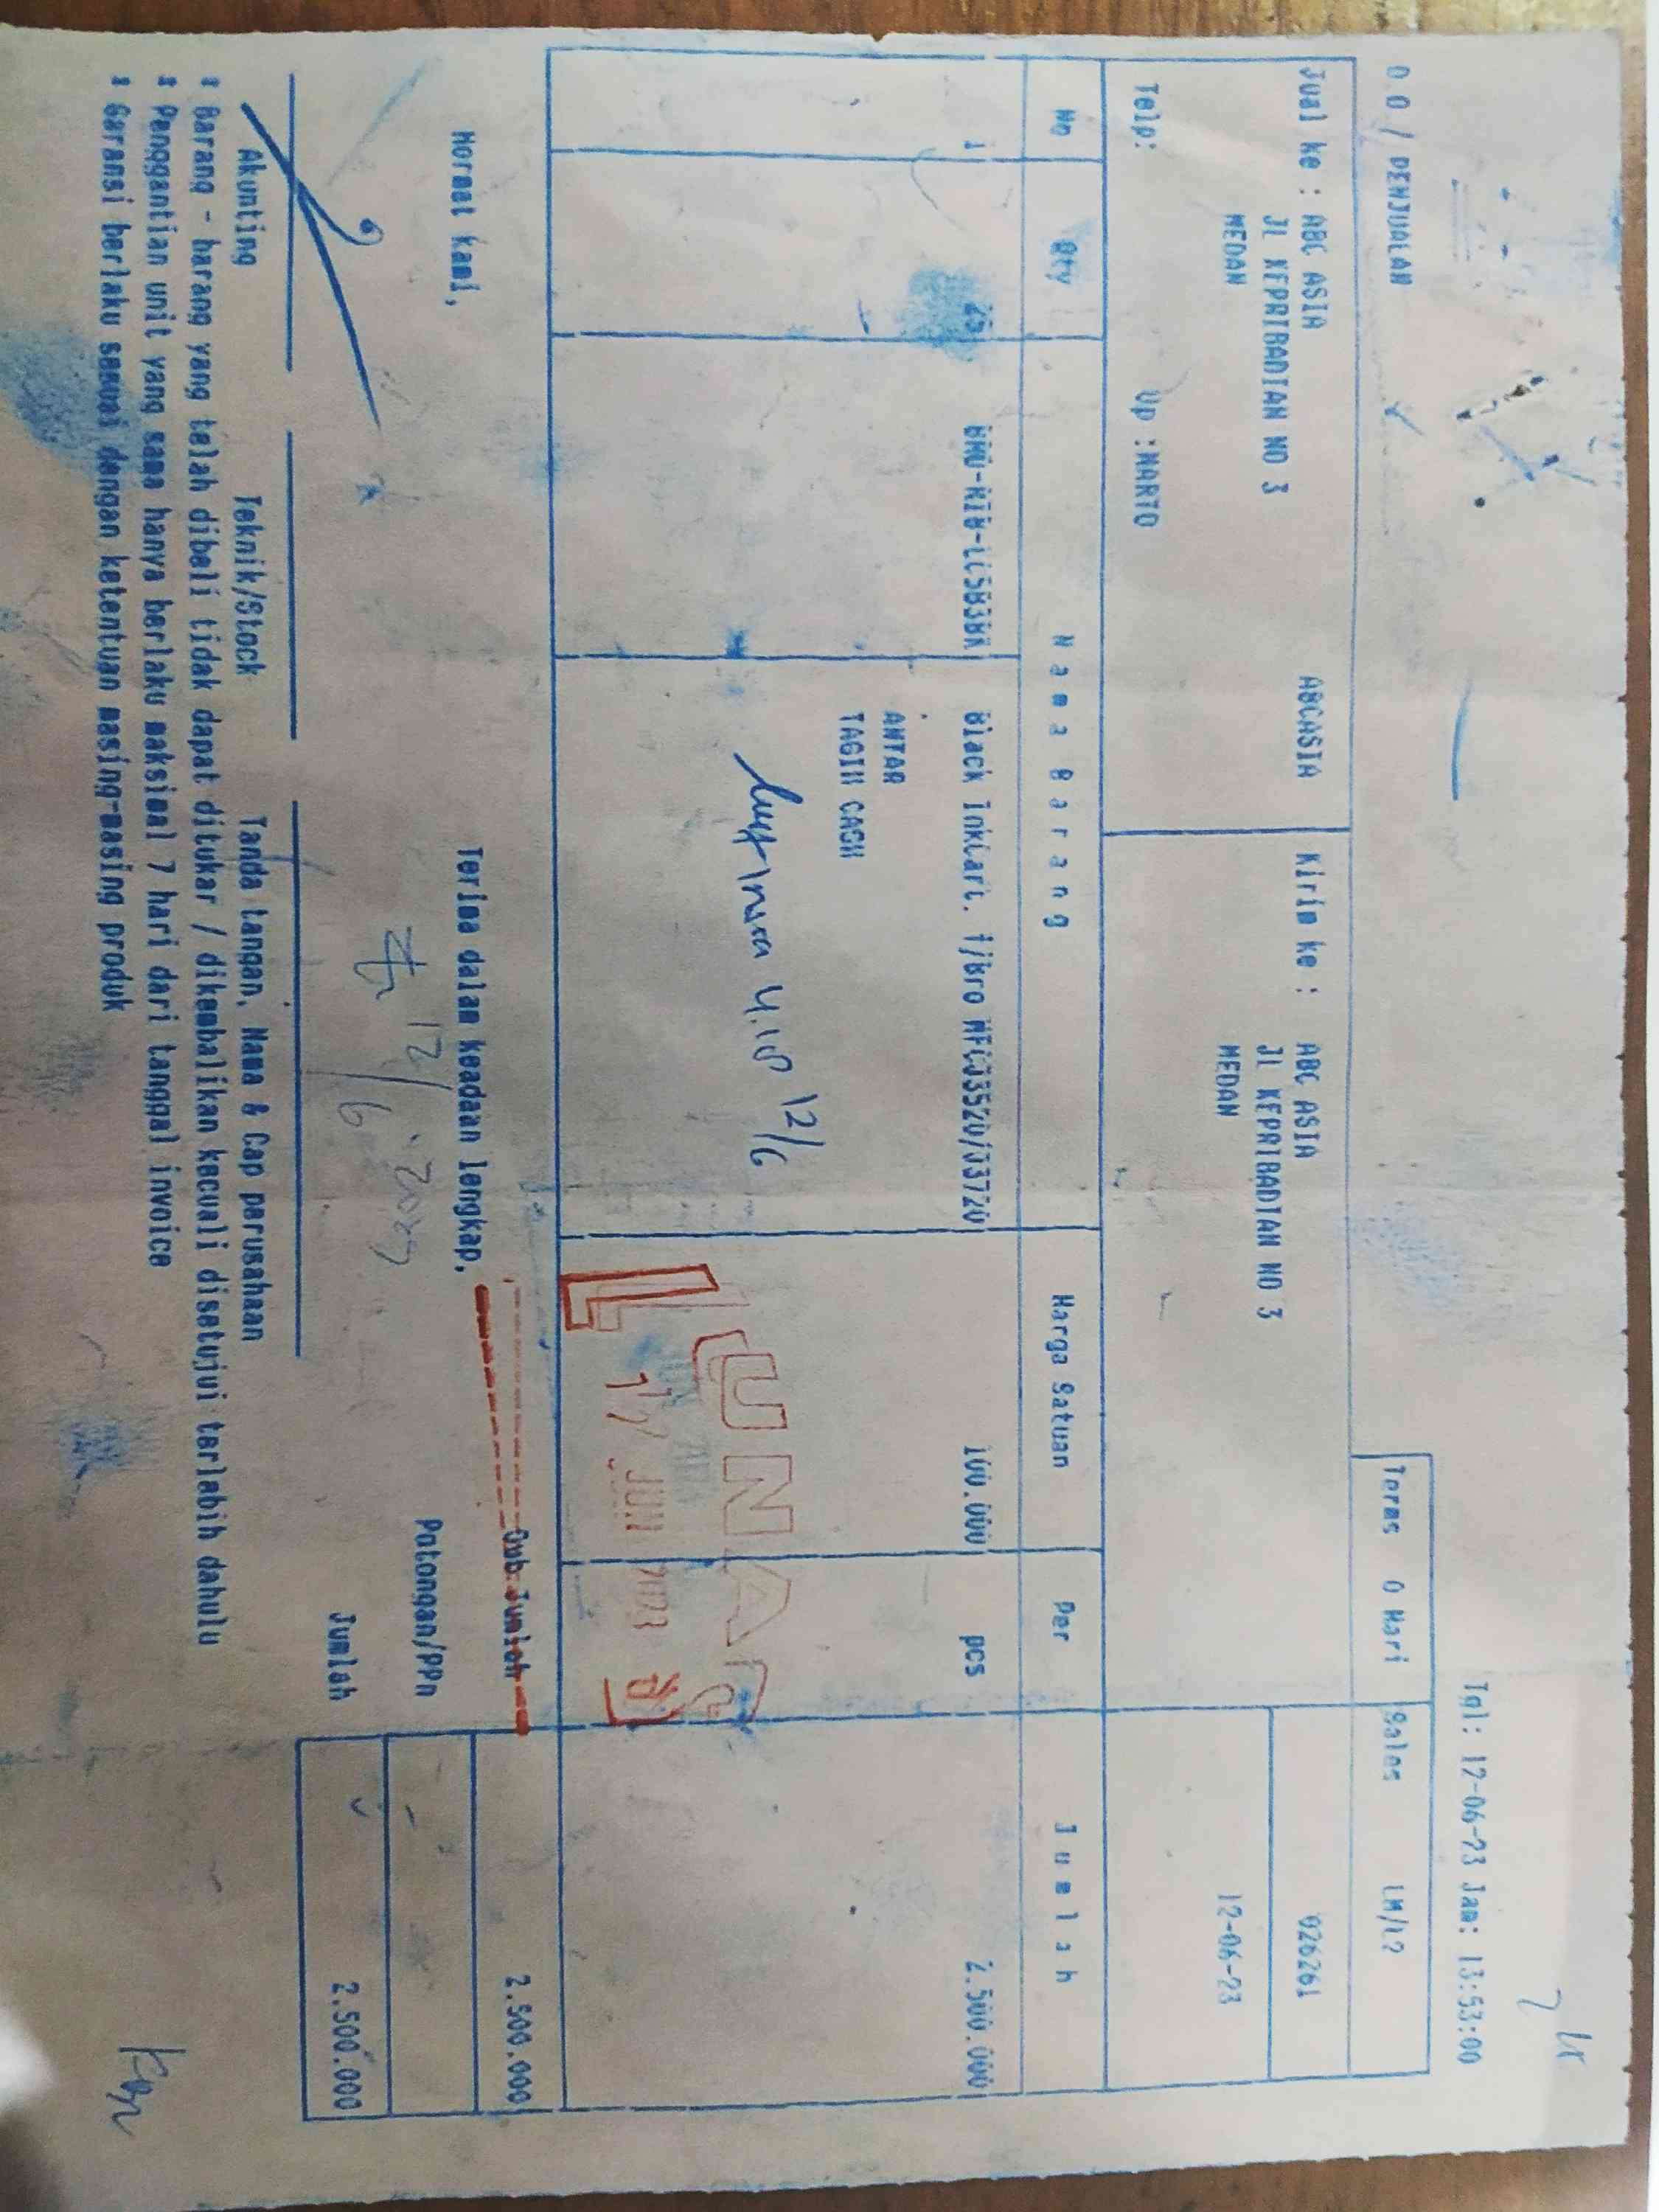 Tgl: 12-06-23 Jam: 13:53:00
0 0 / PENJUALAN
Terms 0 Hari Sales LM/L2
Jual ke : ABC ASIA ABCASIA Kirim ke : ABC ASIA 026261
JL KEPRIBADIAN NO 3 JL KEPRIBADIAN NO 3
MEDAN MEDAN 12-06-23
Telp: Up :MARTO
No Qty Nama Barang Harga Satuan Per Jumlah
1 25 Black InkCart. f/Bro MFCJ3520/J3720 100.000 pcs 2.500.000
ANTAR
TAGIH CASH
12/6
LUNAS
JUN 2023
Hormat kami, Terima dalam keadaan lengkap, Sub Jumlah 2.500.000
Potongan/PPn
12/6
Jumlah 2.500.000
Akunting Teknik/Stock Tanda tangan, Nama & Cap perusahaan
* Barang - barang yang telah dibeli tidak dapat ditukar / dikembalikan kecuali disetujui terlebih dahulu
* Penggantian unit yang sama hanya berlaku maksimal 7 hari dari tanggal invoice
* Garansi berlaku sesuai dengan ketentuan masing-masing produk